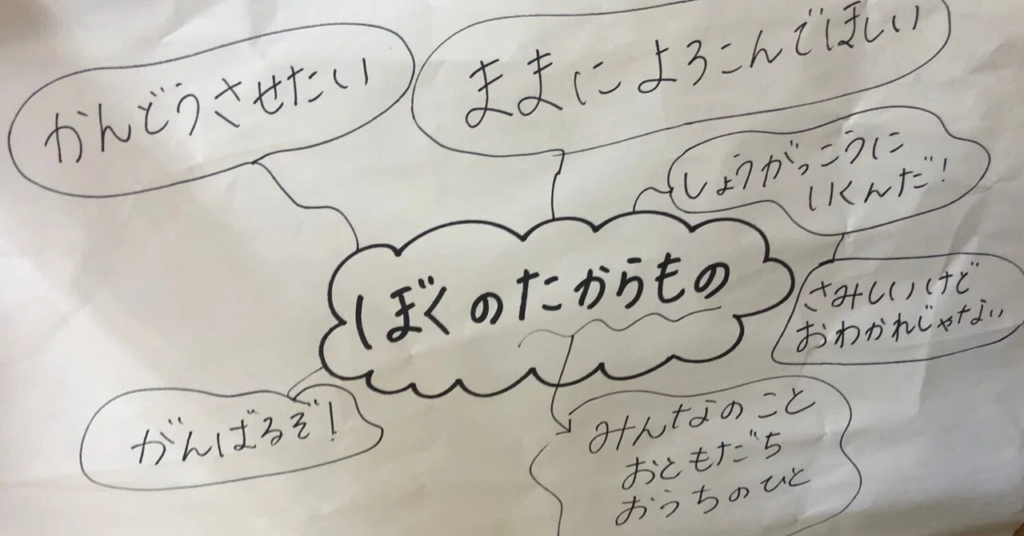 かんどうさせたい
ままによろこんでほしい
しょうがっこうに
いくんだ!
ぼくのたからもの
さみしいけど
おわかれじゃない
がんばるぞ!
みんなのこと
おともだち
おうちのひと